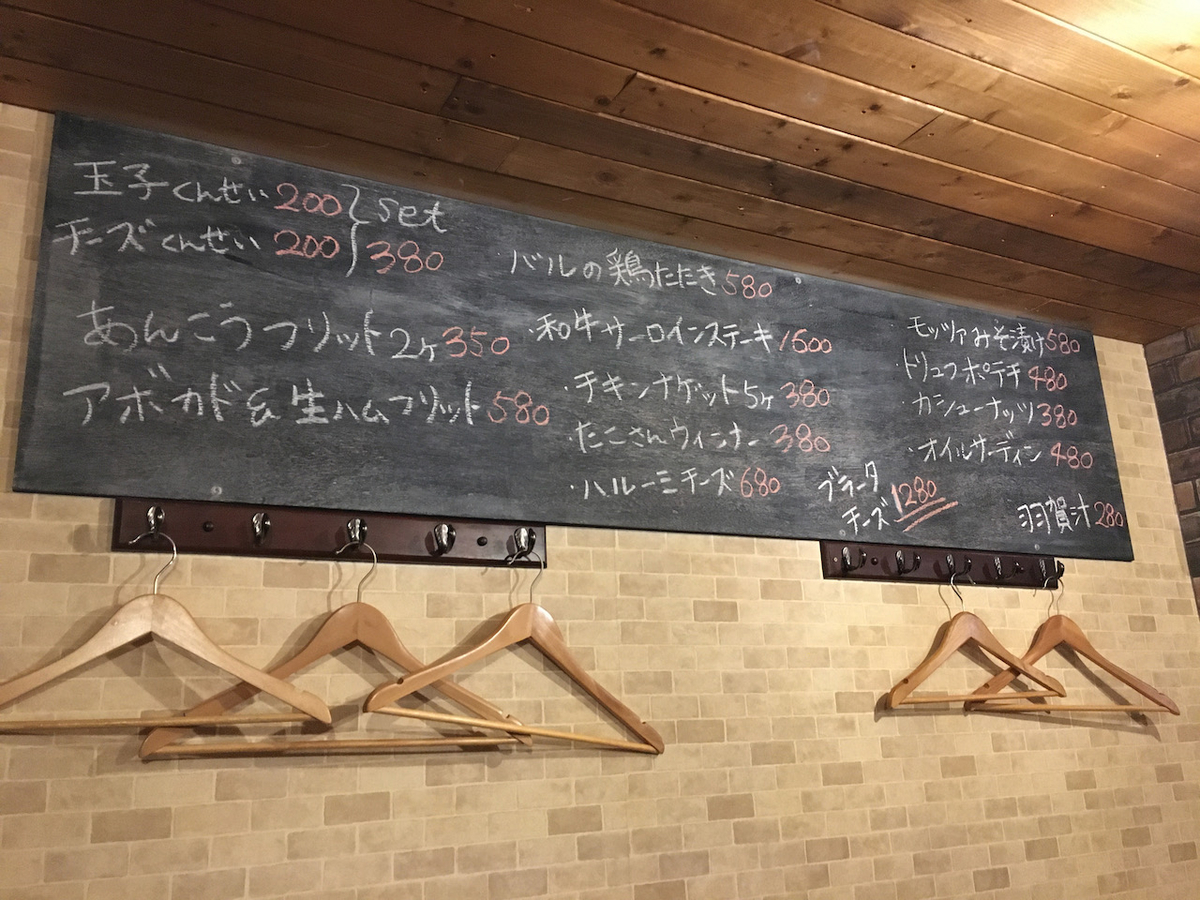 玉子くんせい 200 } set
チーズくんせい 200 } 380
あんこうフリット2ヶ350
アボカド&生ハムフリット580
・バルの鶏たたき580
・和牛サーロインステーキ1600
・チキンナゲット5ヶ380
・たこさんウィンナー380
・ハルーミチーズ680
ブラータ
チーズ 1280
モッツァみそ漬け580
・トリュフポテチ480
・カシューナッツ380
・オイルサーディン480
羽賀汁280